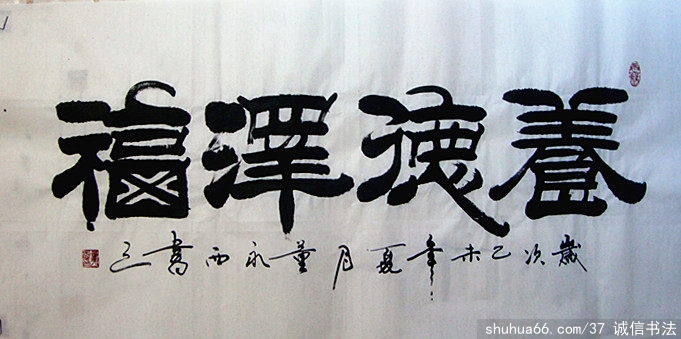 養德澤福
歲次乙未年夏月董永西書
shuhua66.com/37 诚信书法